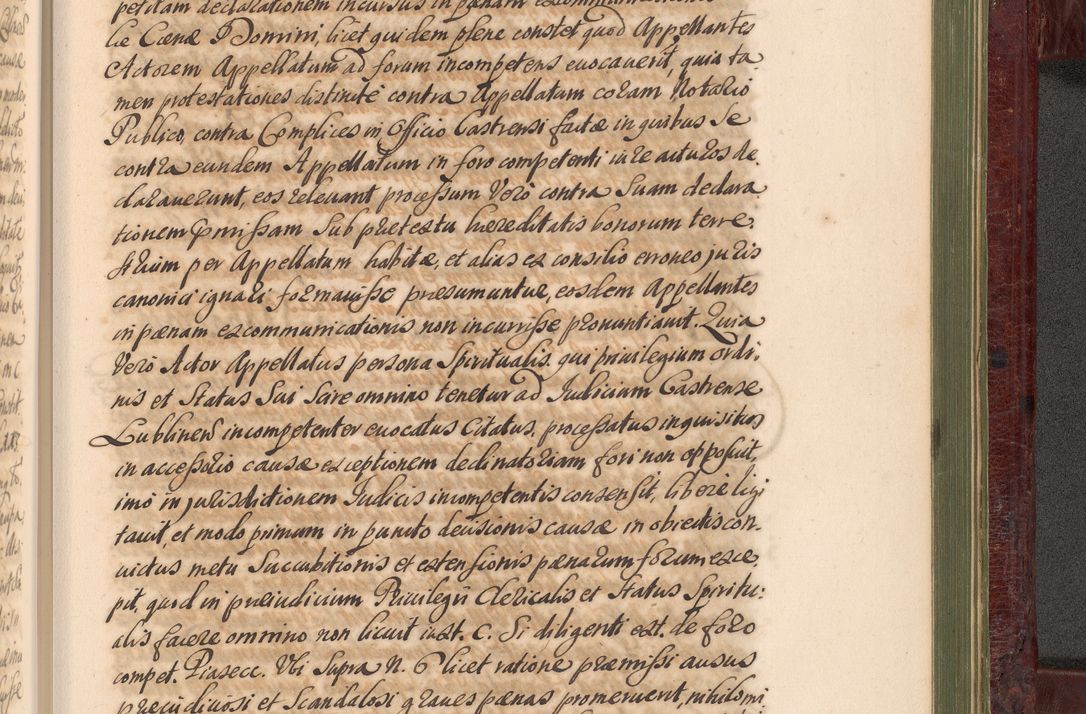 petitam declarationem incursus in pænam excommunicationis
liæ Cœnæ Domini, licet quidem plene constet quod Appellantes
Actorem Appellatum ad forum incompetens euocauerit, quia ta
men protestationes distincte contra Appellatum coram Notario
Publico, contra Complices in Officio Castrensi factæ in quibus se
contra eundem Appellatum in foro competenti iure acturos de,
clarauerunt, eos releuant processum Verò contra Suam declara
tionem præmissam Sub prætextu hæreditatis bonorum terre,
strium per Appellatum habitæ, et alias ex consilio erroneo juris
canonici ignari formauisse præsumuntur, eosdem Appellantes
in pænam excommunicationis non incurrisse pronuntiauit. Quia
Verò Actor Appellatus persona Spiritualis. qui priuilegium ordi,
nis et Status Sui Scire omnino tenetur ad Iudicium Castrense
Lublinens incompetenter euocatus Citatus, processatus inquisitus
in accessorio causæ exceptionem declinatoriam fori non opposuit,
imò in jurisdictionem Iudicis incompetentis consensit, libere liti
tauit, et modo primum in puncto decisionis causæ in obiectis con-
uictus metu Succubitionis et extensionis pænarum forum exce,
pit, quod in præiudicium Priuilegii Clericalis et Status Spiritu:
alis facere omnino non licuit iuxt. C. Si diligenti ext. de foro
compet. Piasecc. Vbi Supra N. 6 licet ratione præmissi ausus
præiudiciosi et Scandalosi graues pænas promeruerit, nihilomi